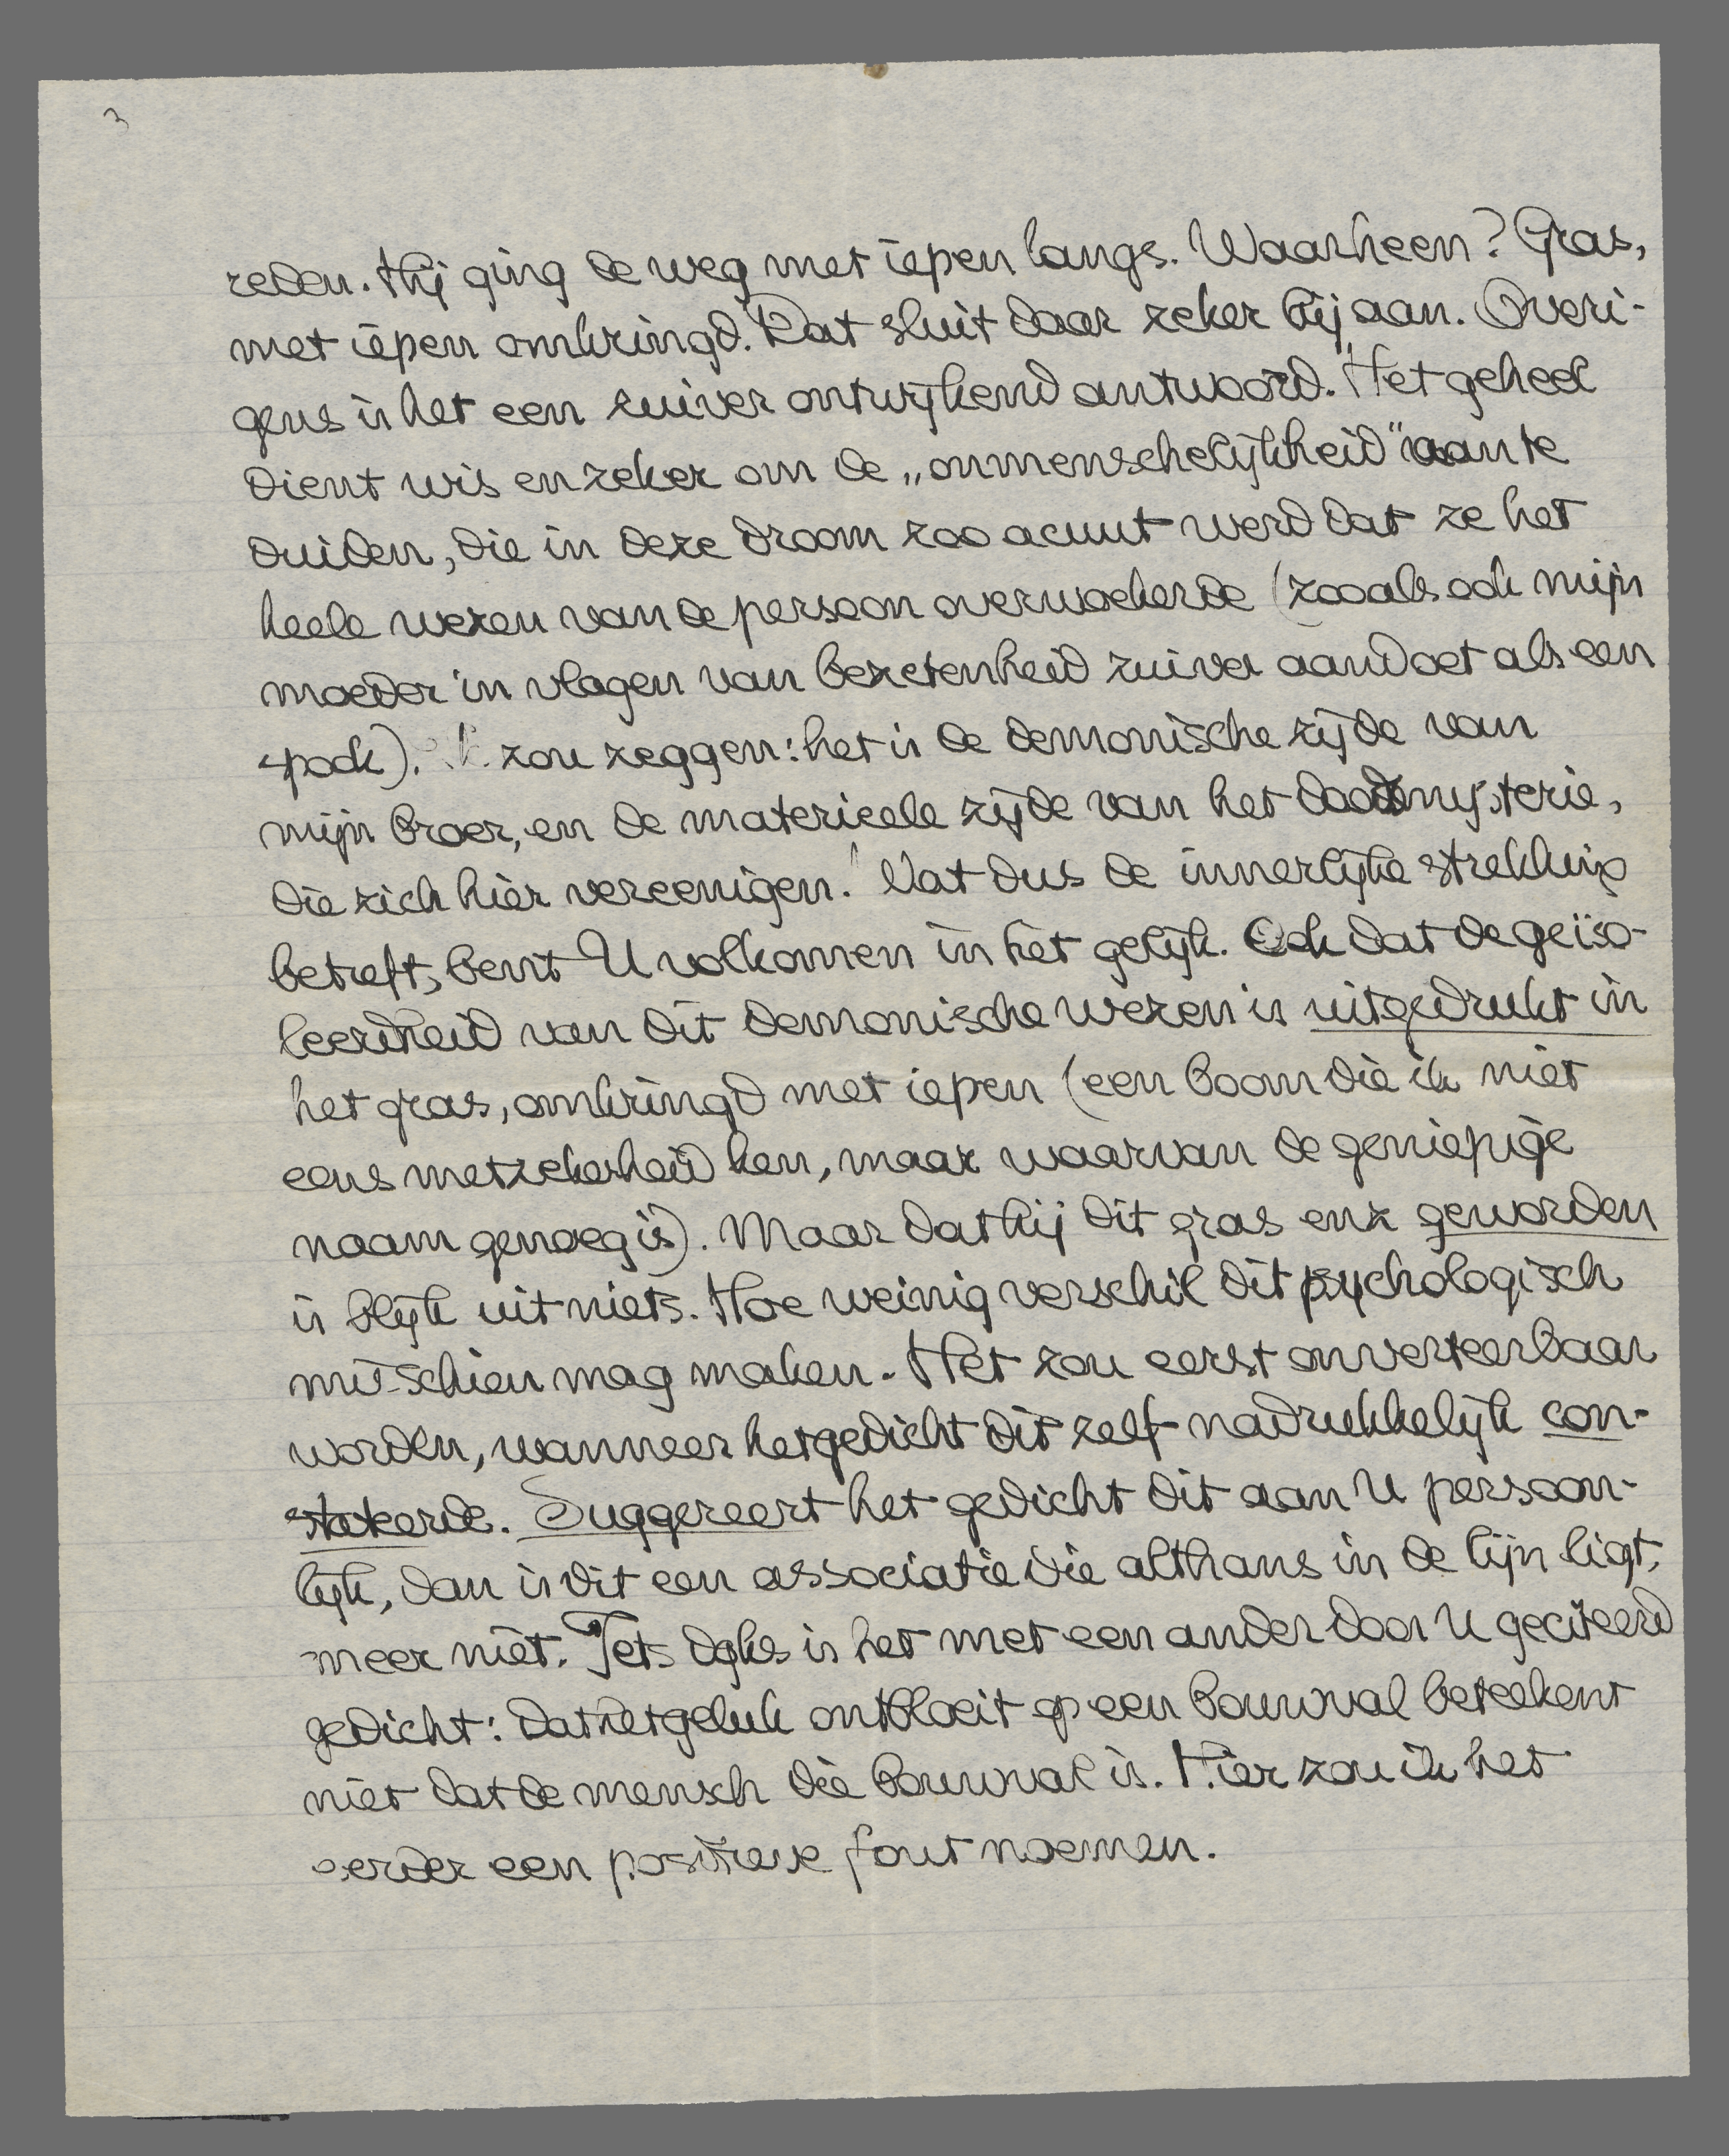 3
reden. Hij ging de weg met iepen langs. Waarheen? Gras,
met iepen omkringd. Dat sluit daar zeker bij aan. Overi-
gens is het een zuiver ontwijkend antwoord. Het geheel
dient wis en zeker om de „onmenschelijkheid” aan te
duiden, die in deze droom zoo acuut werd dat ze het
heele wezen van de persoon overwoekerde (zooals ook mijn
moeder in vlagen van bezetenheid zuiver aandoet als een
spook). Ik zou zeggen: het is de demonische zijde van
mijn broer, en de materieele zijde van het doodsmysterie,
die zich hier vereenigen! Wat dus de innerlijke strekking
betreft, bent U volkomen in het gelijk. Ook dat de geïso-
leerdheid van dit demonische wezen is uitgedrukt in
het gras, omkringd met iepen (een boom die ik niet
eens met zekerheid ken, maar waarvan de geniepige
naam genoeg is). Maar dat hij dit gras enz geworden
is blijk uit niets. Hoe weinig verschil dit psychologisch
misschien mag maken. Het zou eerst onverteerbaar
worden, wanneer het gedicht dit zelf nadrukkelijk con-
stateerde. Suggereert het gedicht dit aan U persoon-
lijk, dan is dit een associatie die althans in de lijn ligt,
meer niet. Iets dgks is het met een ander door U geciteerd
gedicht: dat het geluk ontbloeit op een bouwval beteekent
niet dat de mensch die bouwval is. Hier zou ik het
eerder een positieve fout noemen.